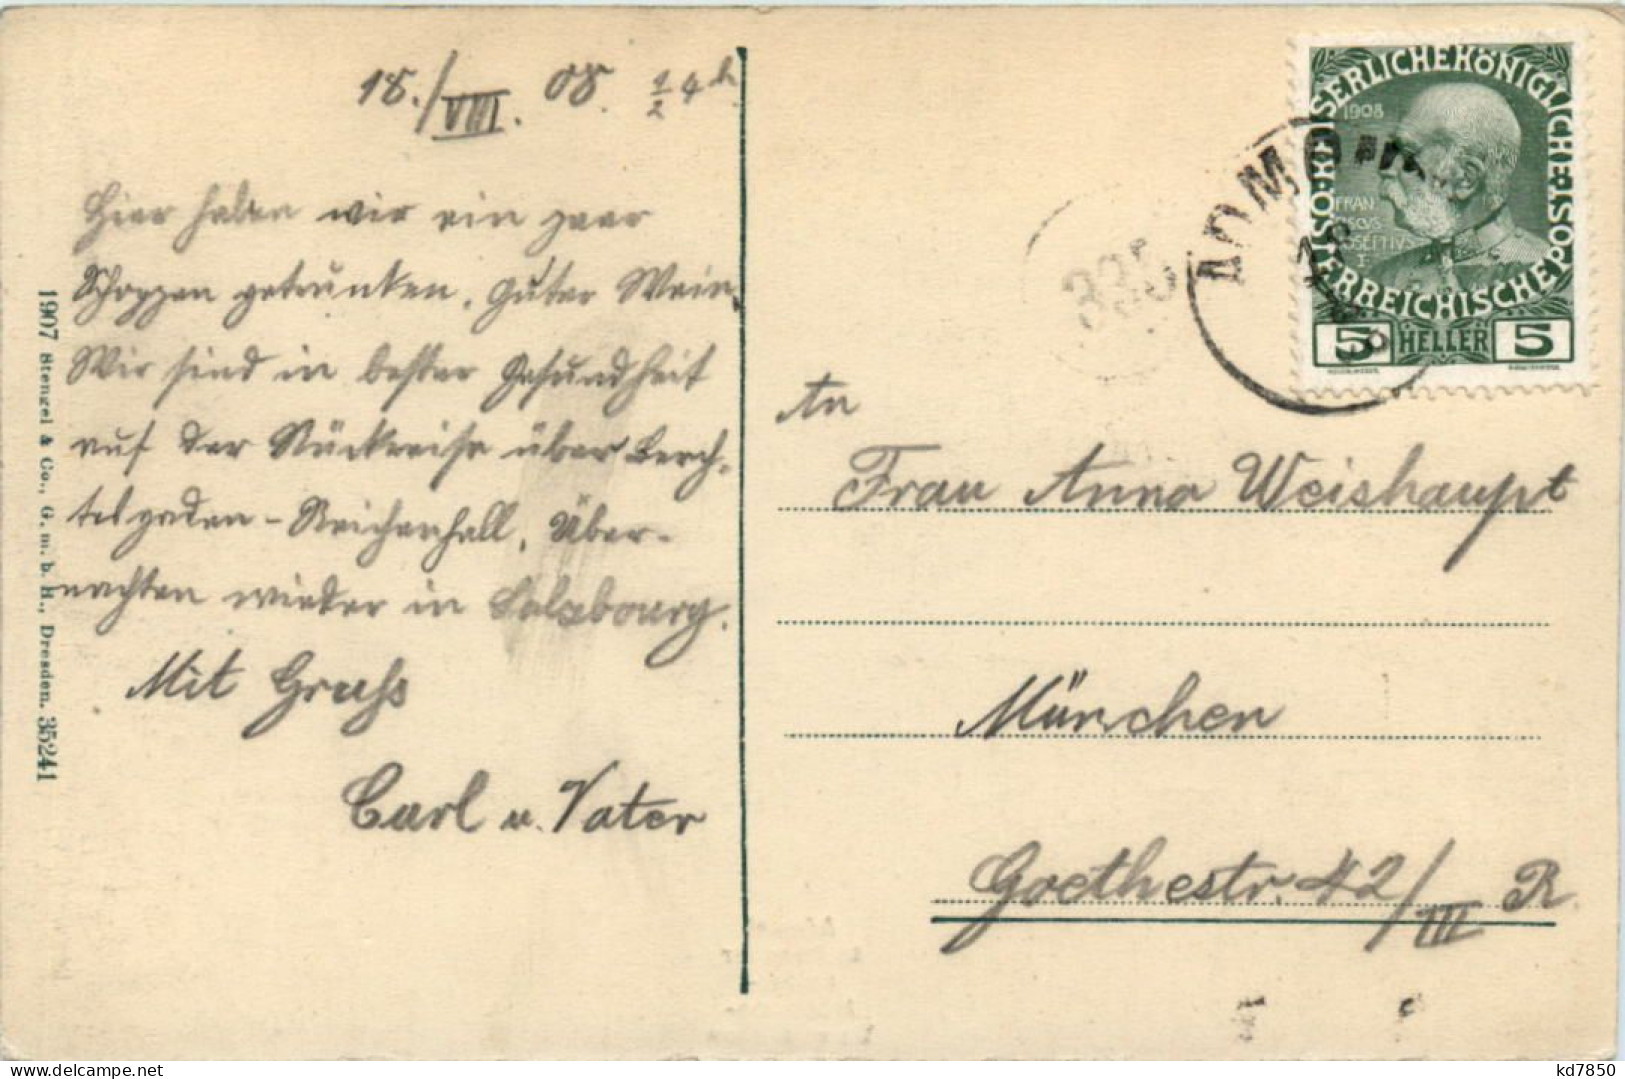 18./VIII. 08. 1/2 4 h
Hier haben wir ein paar
Schoppen getrunken. Guter Wein.
Wir sind in bester Gesundheit
auf der Rückreise über Berch-
tesgaden - Reichenhall. Über-
nachten wieder in Salzbourg.
Mit Gruhs
Carl u. Vater
1907 Stengel & Co., G. m. b. H., Dresden. 35241
KAISERLICHEKÖNIGLICHE ÖSTERREICHISCHE POST
1908
FRAN
CISCVS
IOSEPHVS
I
5 HELLER 5
ADMONT
18
An
Frau Anna Weishaupt
München
Goethestr. 42/III R.
kd7850